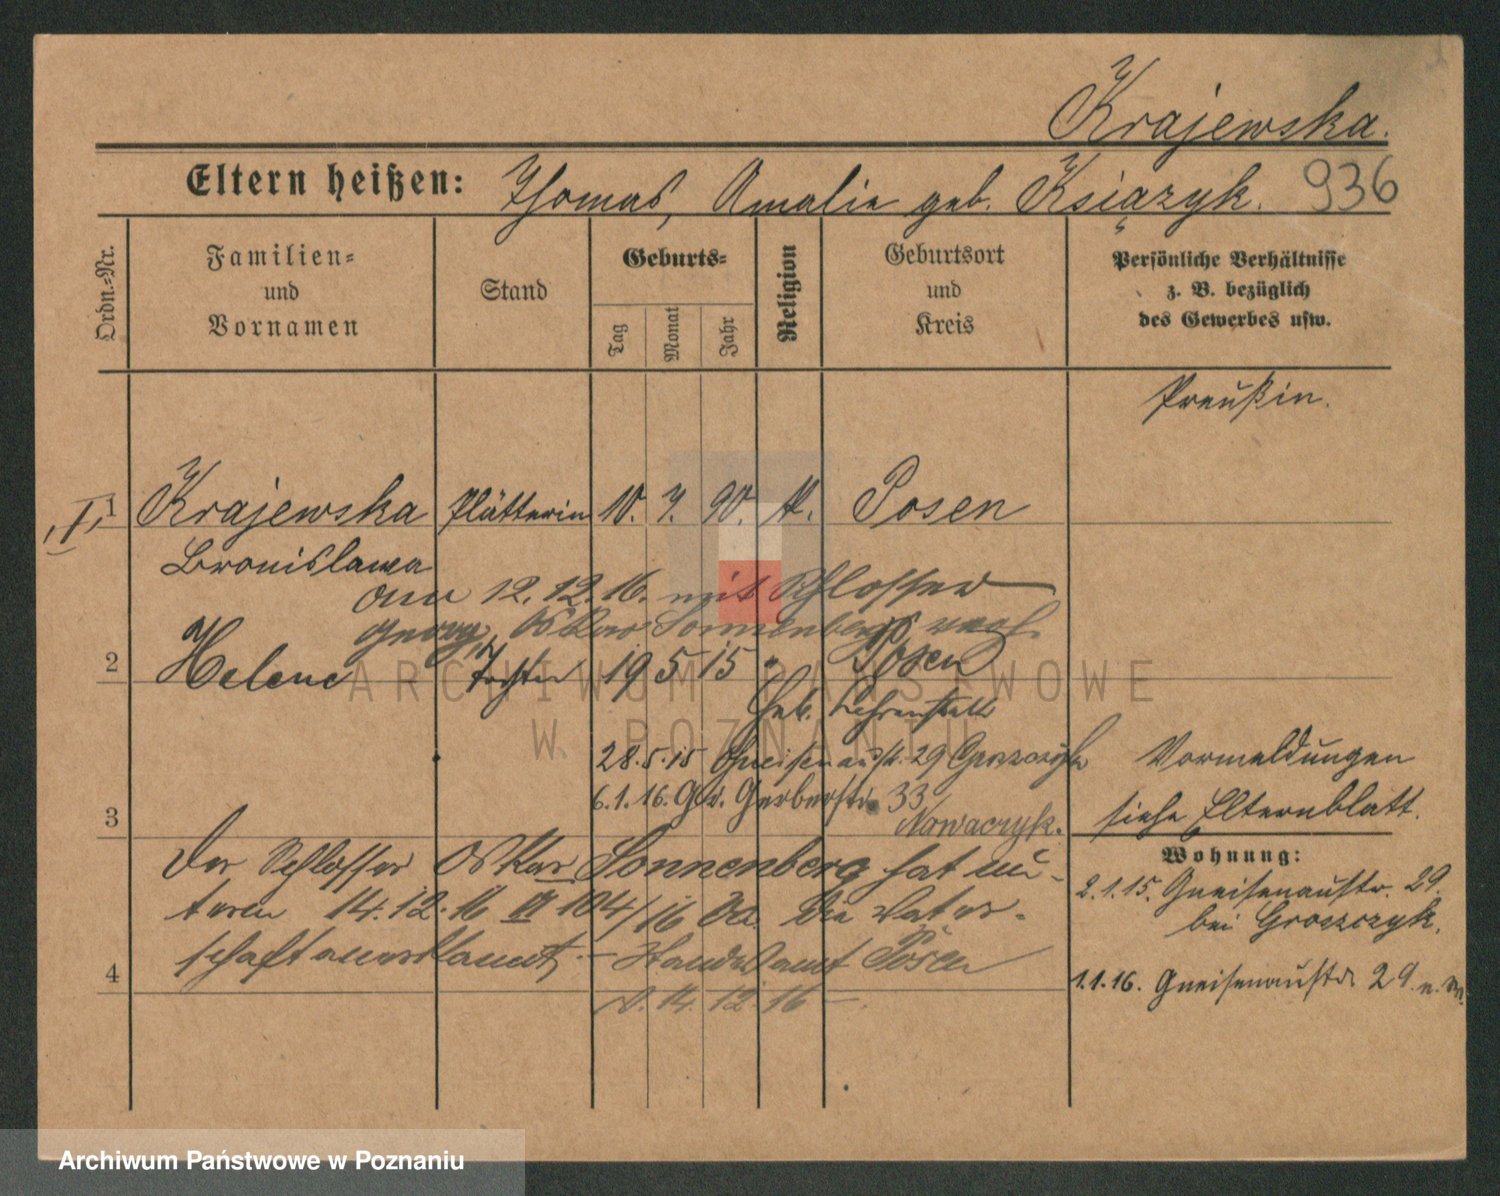 Krajewska.
Eltern heißen: Thomas, Amalie geb. Książyk. 936
Ordn.-Nr.
Familien- und Vornamen
Stand
Geburts-
Tag Monat Jahr
Religion
Geburtsort und Kreis
Persönliche Verhältnisse z. B. bezüglich des Gewerbes usw.
Preußin.
I, 1 Krajewska Plätterin 10. 7. 90. K. Posen
Bronislawa
am 12. 12. 16. mit Schlosser
Georg, Oskar Sonnenberg verh.
2 Helene Tochter 19 5 15 " Posen
Geb.
28.5.15 Gneisenaustr. 29 Groszczyk
6.1.16. Gr. Gerberstr. 33
Nowaczyk.
Vormeldungen
siehe Elternblatt.
3
Wohnung:
Der Schlosser Oskar Sonnenberg hat un-
term 14.12.16 VI 104/16 die Vater-
schaft anerkannt. – Standesamt Posen
d. 14. 12. 16 –
4
2.1.15. Gneisenaustr. 29.
bei Groszczyk.
1.1.16. Gneisenaustr. 29
ARCHIWUM PAŃSTWOWE
W POZNANIU
Archiwum Państwowe w Poznaniu